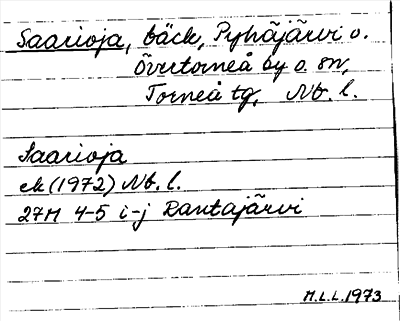 Saarioja, bäck, Pyhäjärvi o.
Övertorneå by o. sn,
Torneå tg, Nb. l.
Saarioja
ek (1972) Nb. l.
27M 4-5 i-j Rantajärvi
M.L.L. 1973